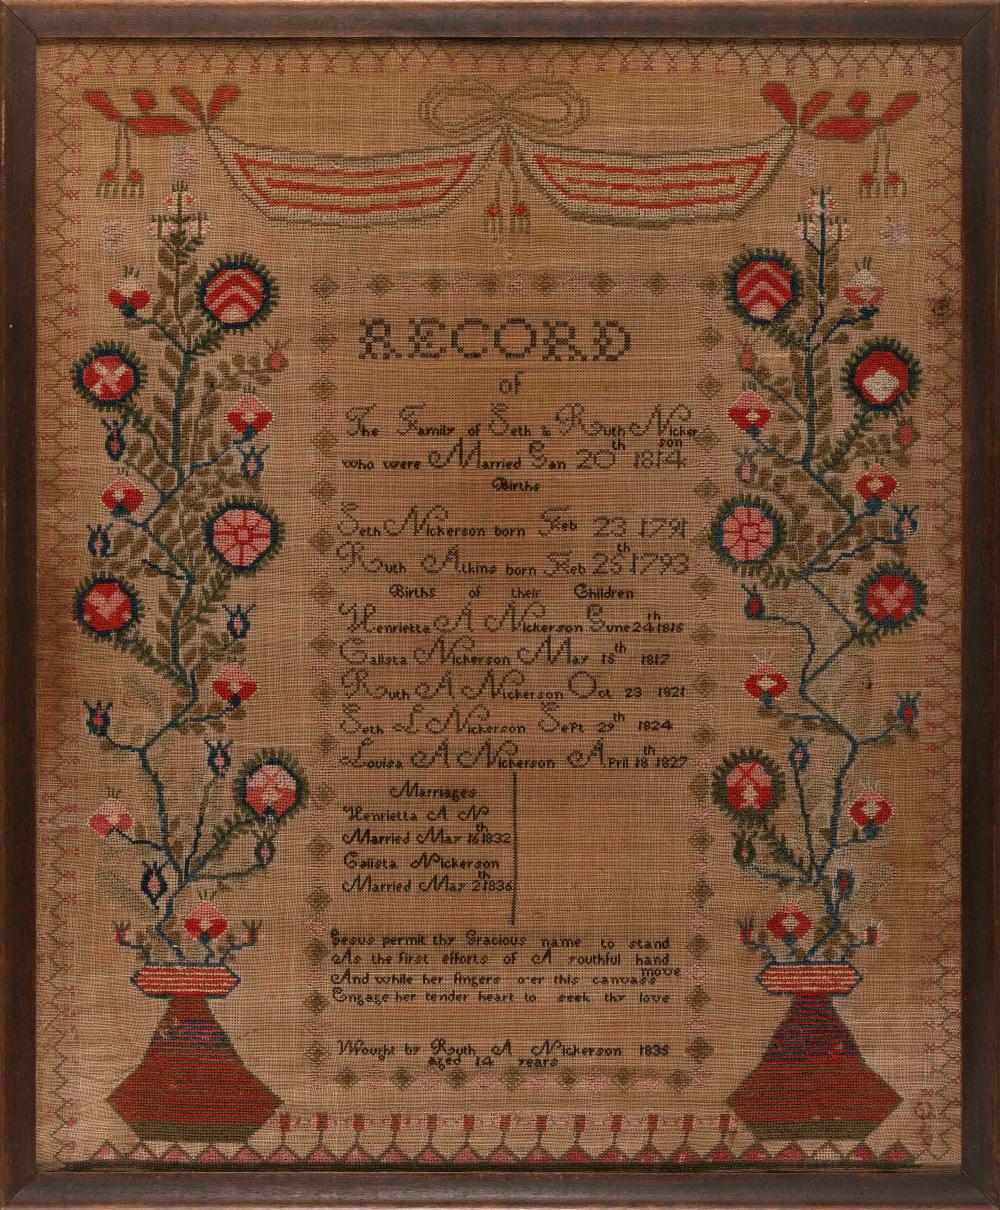 RECORD
of
The Family of Seth & Ruth Nickerson
who were Married Jan 20th 1814
Births
Seth Nickerson born Feb 23 1791
Ruth Atkins born Feb 25th 1793
Births of their Children
Henrietta A Nickerson June 24th 1815
Calista Nickerson May 15th 1817
Ruth A Nickerson Oct 23 1821
Seth L Nickerson Sept 29th 1824
Louisa A Nickerson April 18th 1827
Marriages
Henrietta A N
Married May 16th 1832
Calista Nickerson
Married May 2th 1836
Jesus permit thy Gracious name to stand
As the first efforts of A youthful hand
And while her fingers o'er this canvass move
Engage her tender heart to seek thy love
Wrought by Ruth A Nickerson 1835
aged 14 years